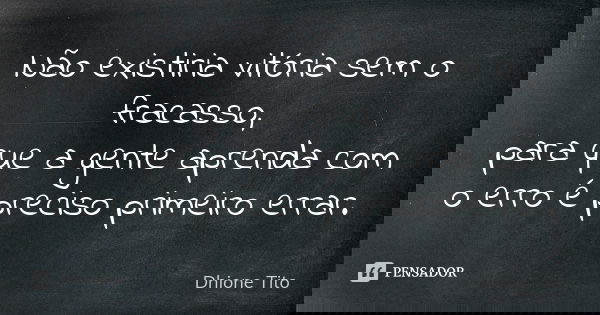 Não existiria vitória sem o
fracasso,
para que a gente aprenda com
o erro é preciso primeiro errar.
Dhione Tito
PENSADOR